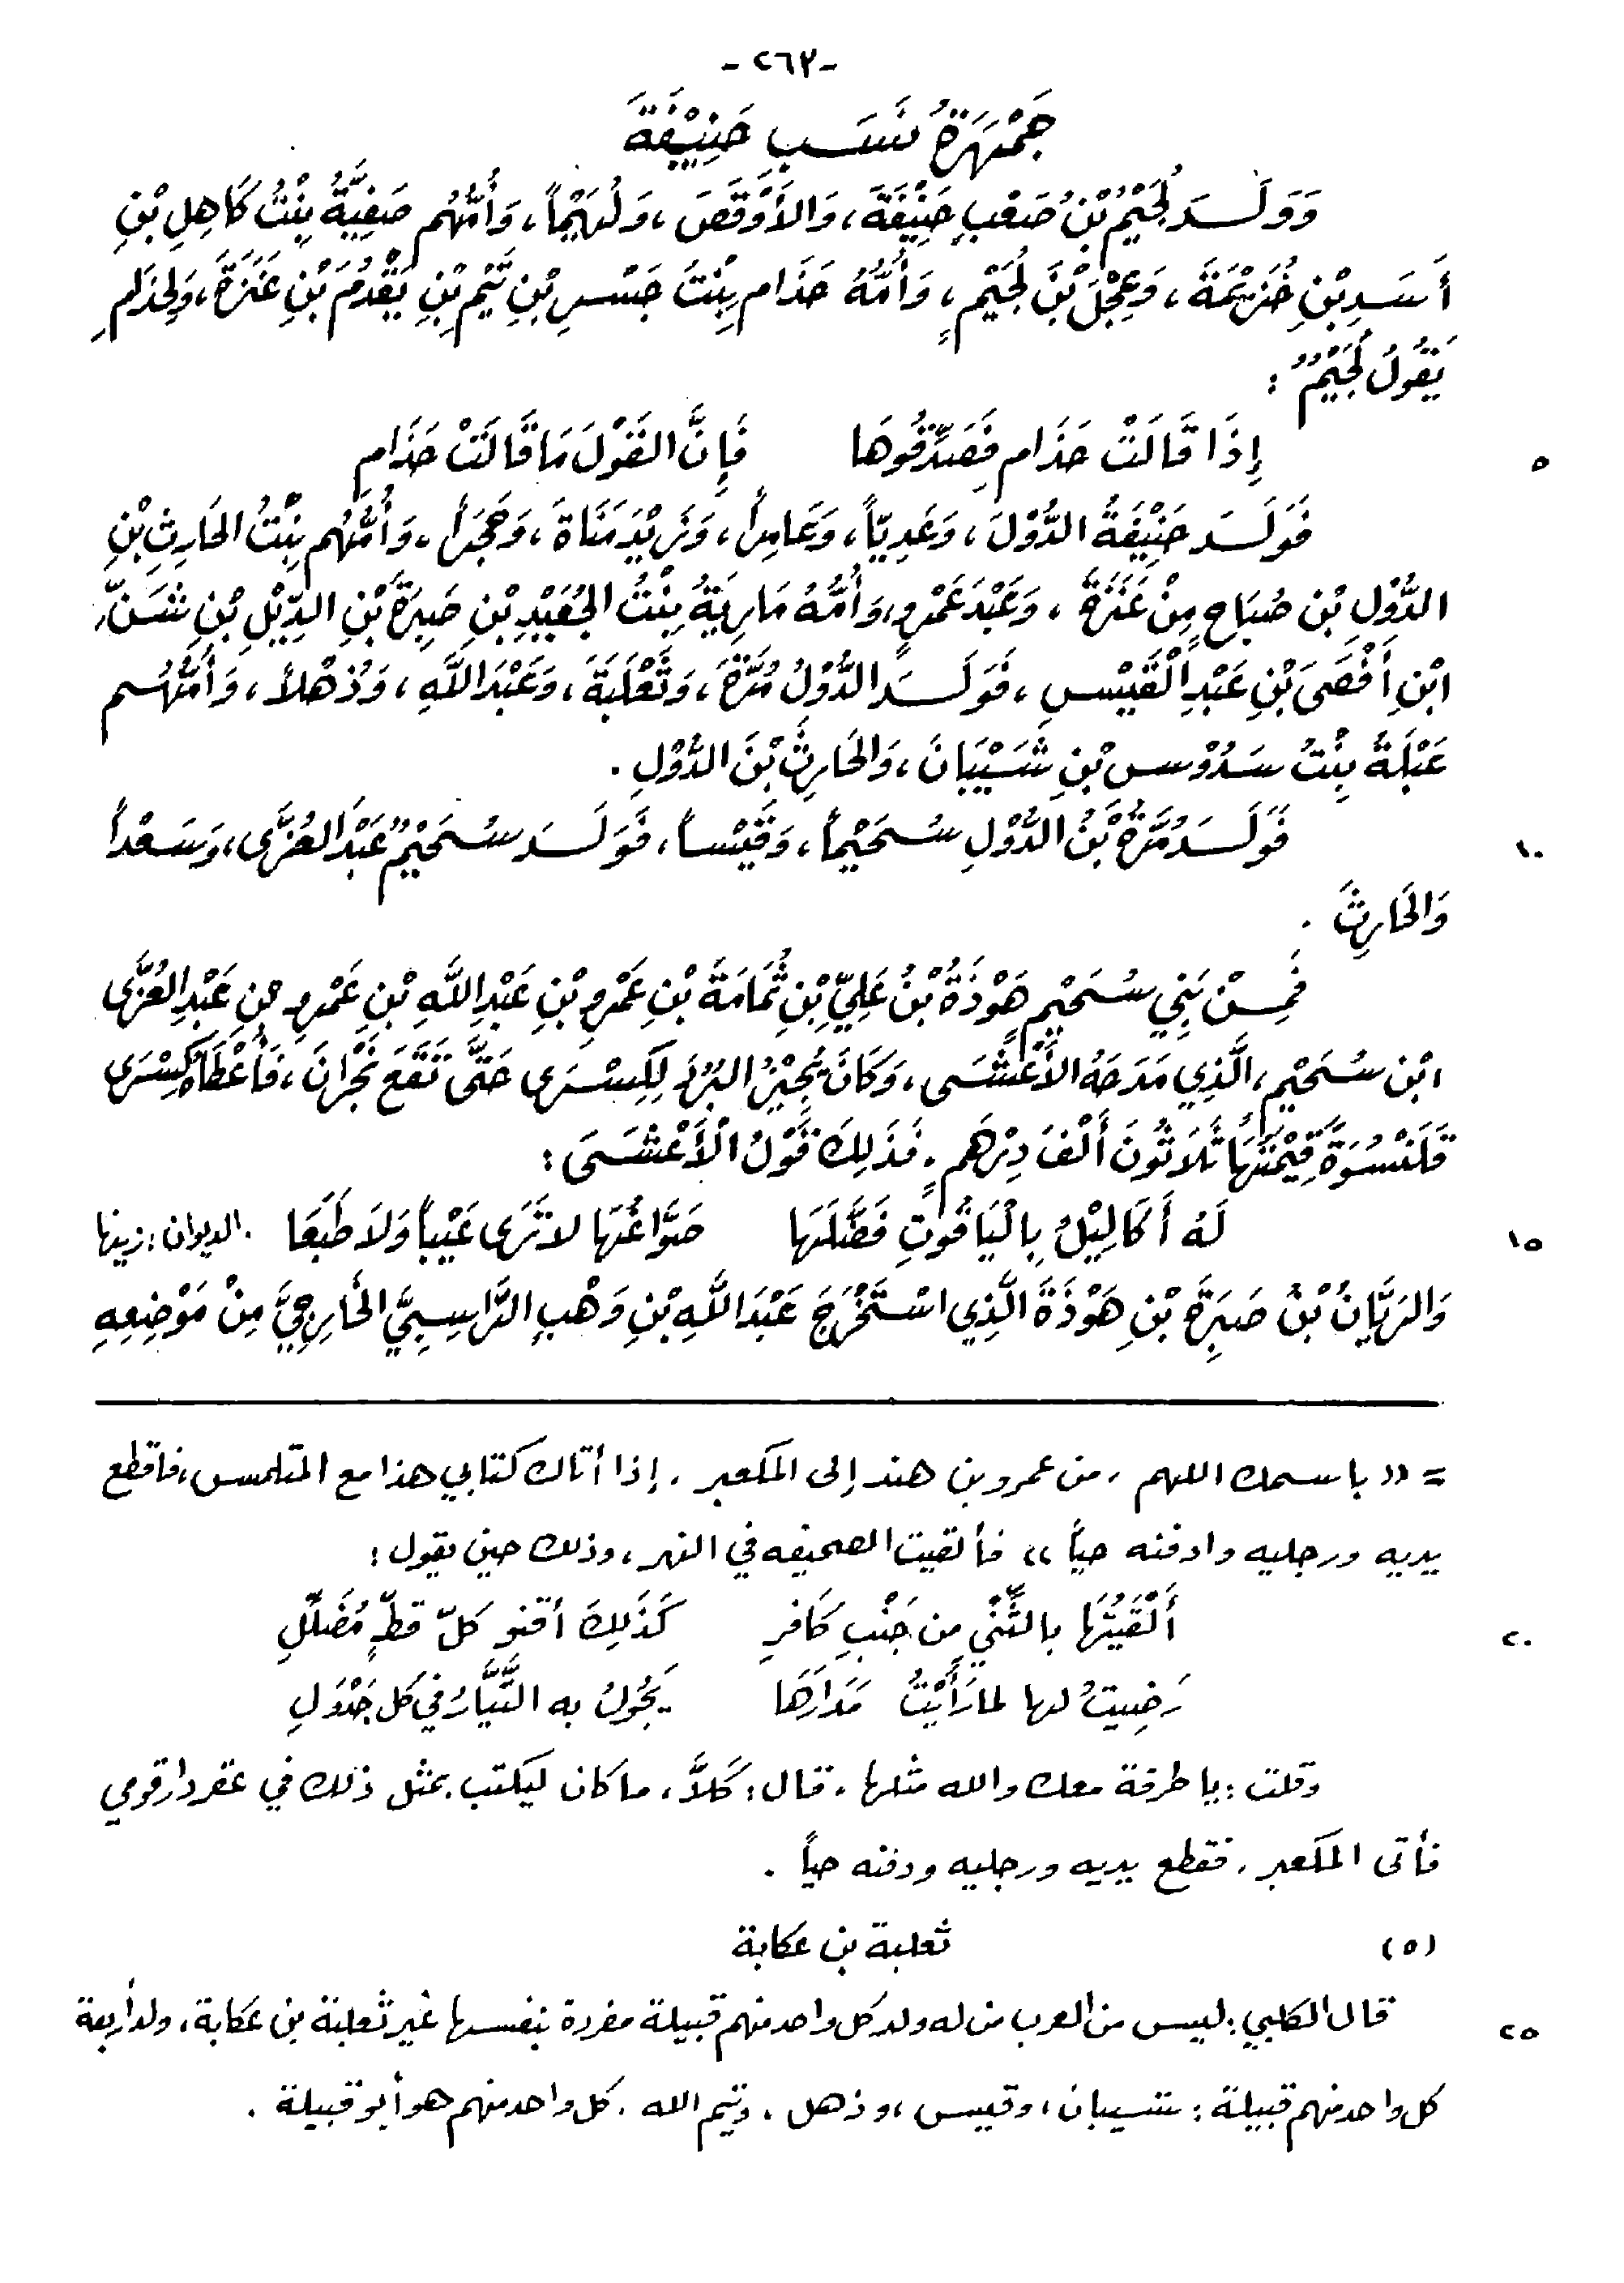 -٢٦٣-
جَمْهَرَةُ نَسَبِ حَنِيْفَةَ
وَوَلَدَ لُجَيْمُ بْنُ صَعْبٍ حَنِيْفَةَ، وَالأَوْقَصَ، وَلُهَيْماً، وَأُمُّهُم صَفِيَّةُ بِنْتُ كَاهِلِ بْنِ
أَسَدِ بْنِ خُزَيْمَةَ، وَعِجْلَ بْنَ لُجَيْمٍ، وَأُمُّهُ حَذَامِ بِنْتُ جَسْرِ بْنِ تَيْمِ بْنِ يَقْدُمَ بْنِ عَنَزَةَ، وَلِحَذَامِ
يَقُولُ لُجَيْمٌ :
إِذَا قَالَتْ حَذَامِ فَصَدِّقُوهَا فَإِنَّ القَوْلَ مَا قَالَتْ حَذَامِ ٥
فَوَلَدَ حَنِيْفَةُ الدُّوْلَ، وَعَدِيّاً، وَعَامِراً، وَزَيْدَ مَنَاةَ، وَحُجْراً، وَأُمُّهُم بِنْتُ الحَارِثِ بْنِ
الدُّوْلِ بْنِ صُبَاحٍ مِنْ عَنَزَةَ، وَعَبْدَ عَمْرٍو، وَأُمُّهُ مَارِيَةُ بِنْتُ الجُعَيْدِ بْنِ صَبِرَةَ بْنِ الدِّيْلِ بْنِ شَنِّ
ابْنِ أَفْصَى بْنِ عَبْدِ الْقَيْسِ، فَوَلَدَ الدُّوْلُ مُرَّةَ، وَثَعْلَبَةَ، وَعَبْدَ اللَّهِ، وَذُهْلاً، وَأُمُّهُم
عَبْلَةُ بِنْتُ سَدُوْسِ بْنِ شَيْبَانَ، وَالحَارِثَ بْنَ الدُّوْلِ .
فَوَلَدَ مُرَّةُ بْنُ الدُّوْلِ سُحَيْماً، وَقَيْساً، فَوَلَدَ سُحَيْمٌ عَبْدَ العُزَّى، وَسَعْداً ١٠
وَالحَارِثَ .
فَمِنْ بَنِي سُحَيْمٍ هَوْذَةُ بْنُ عَلِيِّ بْنِ ثُمَامَةَ بْنِ عَمْرِو بْنِ عَبْدِ اللَّهِ بْنِ عَمْرِو بْنِ عَبْدِ العُزَّى
ابْنِ سُحَيْمٍ، الَّذِي مَدَحَهُ الأَعْشَى، وَكَانَ يُجِيْزُ البُرُدَ لِكِسْرَى حَتَّى تَقَعَ نَجْرَانَ، فَأَعْطَاهُ كِسْرَى
قَلَنْسُوَةً قِيْمَتُهَا ثَلَاثُونَ أَلْفَ دِرْهَمٍ، فَذَلِكَ قَوْلُ الْأَعْشَى :
لَهُ أَكَالِيْلُ بِالْيَاقُوتِ فَصَّلَهَا صَوَّاغُهَا لا تَرَى عَيْباً وَلَا طَبَعَا . الديوان: زينها ١٥
وَالرَيَّانُ بْنُ صَبِرَةَ بْنِ هَوْذَةَ الَّذِي اسْتَخْرَجَ عَبْدَ اللَّهِ بْنِ وَهْبٍ الرَّاسِبِيَّ الخَارِجِيَّ مِنْ مَوْضِعِهِ
= «باسمك اللهم، من عمرو بن هند إلى المكعبر. إذا أتاك كتابي هذا مع المتلمس، فاقطع
يديه ورجليه وادفنه حياً» فألقيت الصحيفه في النهر، وذلك حين يقول:
أَلْقَيْتُهَا بالثِّنْيِ من جَنْبِ كَافرِ كَذَلِكَ أقنو كلّ قطٍّ مُضَلَّلِ ٢٠
رَضِيتُ لها لما رَأَيْتُ مَدَارَهَا يَجُولُ به التَّيَّارُ في كل جَدْوَلِ
وقلت: يا طرفة معك والله مثلها، قال: كَلاَّ، ما كان ليكتب بمثل ذلك في عقر دار قومي
فأتى المكعبر، فقطع يديه ورجليه ودفنه حياً .
(٥) ثعلبة بن عكابة
قال الكلبي: ليس من العرب من له ولد كل واحد منهم قبيلة مفردة بنفسها غير ثعلبة بن عكابة، ولد أربعة ٢٥
كل واحد منهم قبيلة: شيبان، وقيس، وذهل، وتيم الله، كل واحد منهم هو أبو قبيلة .